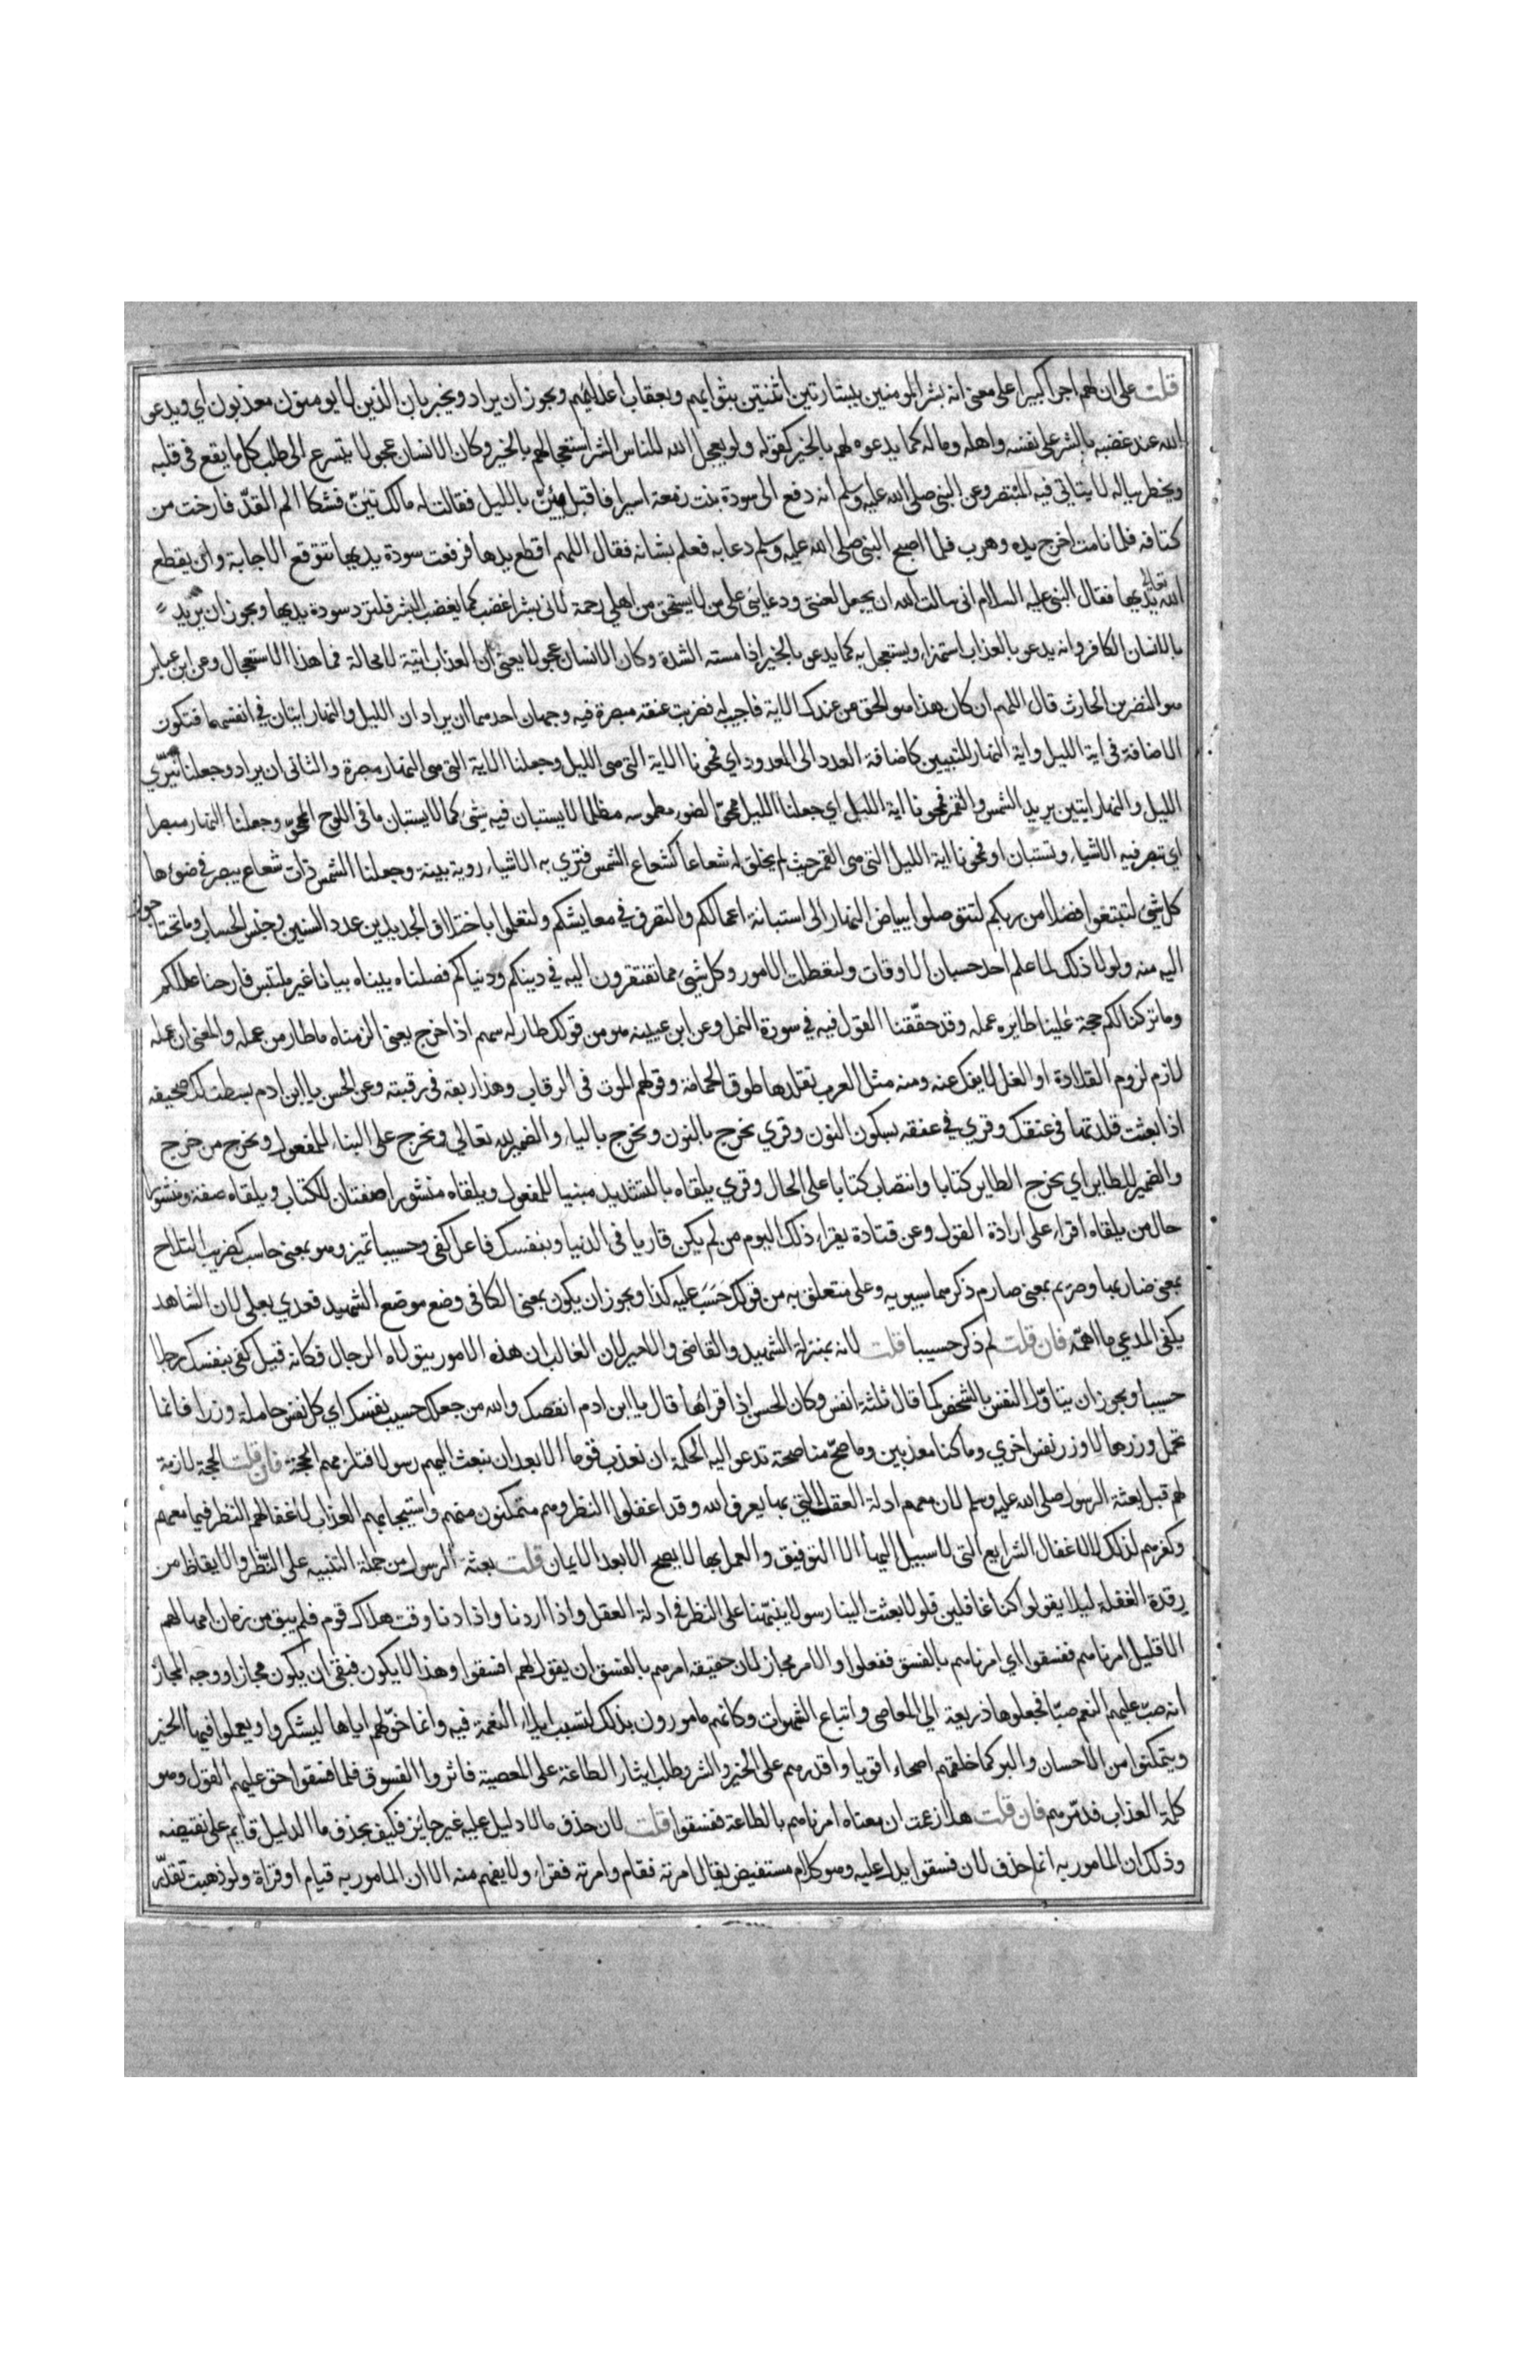 قلت على ان لهم اجرا كبيرا على معنى انه بشر المومنين ببشارتين اثنتين بثوابهم وبعقاب اعدايهم ويجوز ان يراد ويخبر بان الذين لا يومنون معذبون اي ويدعو
الله عند غضبه بالشر على نفسه واهله وماله كما يدعوه لهم بالخير كقوله ولو يعجل الله للناس الشر استعجالهم بالخير وكان الانسان عجولا يتسرع الى طلب كل ما يقع فى قلبه
ويخطر بباله لا يتانى فيه المتبصر وعن النبى صلى الله عليه وسلم انه دفع الى سودة بنت زمعة اسيرا فاقبل يئن بالليل فقالت له مالك تئن فشكا الم القد فارخت من
كتافه فلما نامت اخرج يده وهرب فلما اصبح النبى صلى الله عليه وسلم دعا به فعلم بشانه فقال اللهم اقطع يدها فرفعت سودة يديها تتوقع الاجابة وان يقطع
الله تعالى يديها فقال النبى عليه السلام انى سالت الله ان يجعل لعنتى ودعائى على من لا يستحق من اهلى رحمة لانى بشر اغضب كما يغضب البشر فلترد سودة يديها ويجوز ان يريد
بالانسان الكافر وانه يدعو بالعذاب استهزاء ويستعجل به كما يدعو بالخير اذا مسته الشدة وكان الانسان عجولا يعنى ان العذاب اتية لا محالة فما هذا الاستعجال وعن ابن عباس
هو النضر بن الحارث قال اللهم ان كان هذا هو الحق من عندك الاية فاجيب له فضربت عنقه مبصرة فيه وجهان احدهما ان يراد ان الليل والنهار ايتان فى انفسهما فتكون
الاضافة فى اية الليل واية النهار للتبيين كاضافة العدد الى المعدود اي فمحونا الاية التى هى الليل وجعلنا الاية التى هى النهار مبصرة والثانى ان يراد وجعلنا نيري
الليل والنهار ايتين يريد الشمس والقمر فمحونا اية الليل اي جعلنا الليل ممحو الضوء مطموسه مظلما لا يستبان فيه شئ كما لا يستبان ما فى اللوح الممحو وجعلنا النهار مبصرا
اي تبصر فيه الاشياء وتستبان او فمحونا اية الليل التى هى القمر حيث لم يخلق له شعاعا كشعاع الشمس فتري به الاشياء روية بينة وجعلنا الشمس ذات شعاع يبصر فى ضوئها
كل شئ لتبتغوا فضلا من ربكم لتتوصلوا ببياض النهار الى استبانة اعمالكم والتصرف فى معايشكم ولتعلموا باختلاف الجديدين عدد السنين وجنس الحساب وما تحتاجون
اليه منه ولولا ذلك لما علم احد حسبان الاوقات ولتعطلت الامور وكل شئ مما تفتقرون اليه فى دينكم ودنياكم فصلناه بيناه بيانا غير ملتبس فازحنا عللكم
وما تركنا لكم حجة علينا طائره عمله وقد حققنا القول فيه فى سورة النمل وعن ابن عيينه هو من قولك طار له سهم اذا خرج يعنى الزمناه ما طار من عمله والمعنى ان عمله
لازم لزوم القلادة او الغل لا يفك عنه ومنه مثل العرب تقلدها طوق الحمامة وقولهم الموت فى الرقاب وهذا ربقة فى رقبته وعن الحسن يا ابن ادم بسطت لك صحيفه
اذا بعثت قلدتها فى عنقك وقري فى عنقه بسكون النون وقري نخرج بالنون ويخرج بالياء والضمير لله تعالى ويخرج على البناء للمفعول ويخرج من خرج
والضمير للطاير اي يخرج الطاير كتابا وانتصاب كتابا على الحال وقري يلقاه بالتشديد مبنيا للمفعول ويلقاه منشورا صفتان للكتاب او يلقاه صفة ومنشورا
حال من يلقاه اقرا على ارادة القول وعن قتادة يقرا ذلك اليوم من لم يكن قاريا فى الدنيا وبنفسك فاعل كفى وحسيبا تميز وهو بمعنى حاسب كضريب القداح
بمعنى ضاربها وصريم بمعنى صارم ذكرهما سيبويه وعلى متعلق به من قولك حسب عليه كذا ويجوز ان يكون بمعنى الكافى وضع موضع الشهيد فعدي بعلى لان الشاهد
يكفى المدعى ما اهمه فان قلت لم ذكر حسيبا قلت لانه بمنزلة الشهيد والقاضى والامير لان الغالب ان هذه الامور يتولاه الرجال فكانه قيل كفى بنفسك رجلا
حسيبا ويجوز ان يتاول النفس بالشخص كما قال ثلثة انفس وكان الحسن اذا قراها قال يا ابن ادم انصفك والله من جعلك حسيب نفسك اي كل نفس حاملة وزرا فانما
تحمل وزرها لا وزر نفس اخري وما كنا معذبين وما صح منا صحة تدعو اليه الحكمة ان نعذب قوما الا بعد ان نبعث اليهم رسولا فتلزمهم الحجة فان قلت الحجة لازمة
لهم قبل بعثة الرسول صلى الله عليه وسلم لان معهم ادلة العقل التى بها يعرف الله وقد اغفلوا النظر وهم متمكنون منهم واستيجابهم العذاب لاغفالهم النظر فيما معهم
وكفرهم لذلك لا لاغفال الشرايع التى لا سبيل اليها الا التوفيق والعمل بها لا يصح الا بعد الايمان قلت بعثة الرسول من جملة التنبيه على النظر والايقاظ من
رقدة الغفلة ليلا يقولوا كنا غافلين فلولا بعثت الينا رسولا ينبهنا على النظر فى ادلة العقل واذا اردنا واذا دنا وقت هلاك قوم فلم يبق من زمان امهالهم
الا قليل امرناهم ففسقوا اي امرناهم بالفسق ففعلوا والامر مجاز لان حقيقه امرهم بالفسق ان يقول لهم افسقوا وهذا لا يكون فبقى ان يكون مجازا ووجه المجاز
انه صب عليهم النعم صبا فجعلوها ذريعة الى المعاصى واتباع الشهوات وكانهم مامورون بذلك لتسبب ايلاء النعمة فيه وانما خولهم اياها ليشكروا ويعملوا فيها الخير
ويتمكنوا من الاحسان والبر كما خلقهم اصحاء اقويا واقدرهم على الخير والشر وطلب ايثار الطاعة على المعصية فاثروا الفسوق فلما فسقوا حق عليهم القول وهو
كلمة العذاب فدمرهم فان قلت هلا زعمت ان معناه امرناهم بالطاعة ففسقوا قلت لان حذف ما لا دليل عليه غير جايز فكيف يحذف ما الدليل قايم على نقيضه
وذلك ان المامور به انما حذف لان فسقوا يدل عليه وهو كلام مستفيض يقال امرته فقام وامرته فقرا ولا يفهم منه الا ان المامور به قيام او قراة ولو ذهبت تقدر